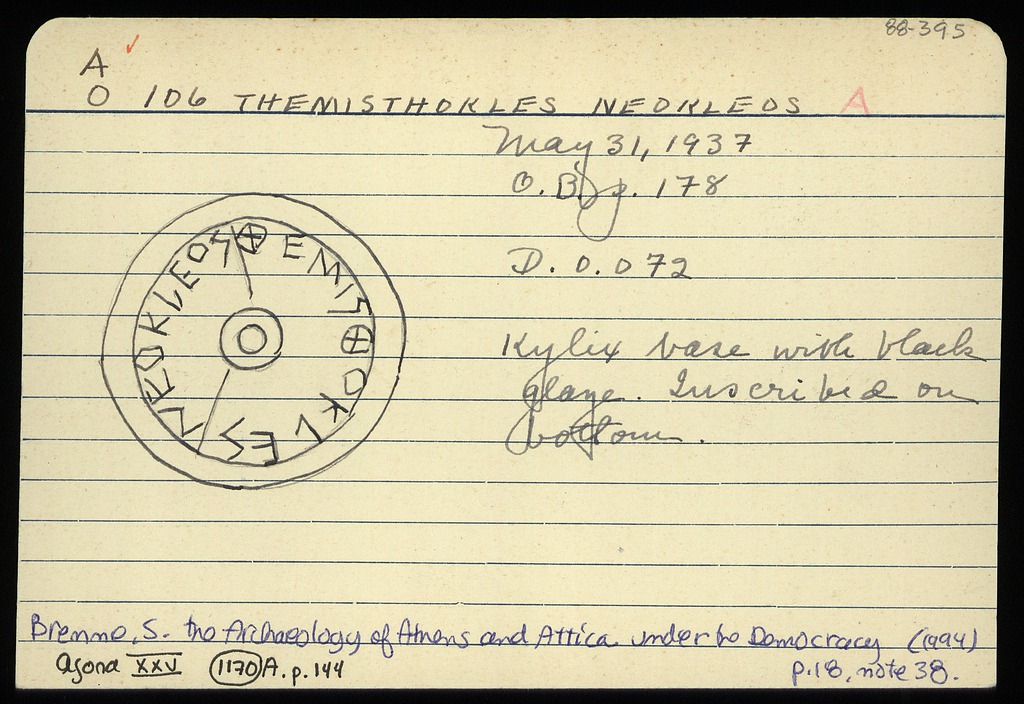 88-395
A ✓
O 106 THEMISTHOKLES NEOKLEOS A
May 31, 1937
O.B. g. p. 178
D. 0.072
⊕EMIS⊕OKLES
NEOKLEOS
Kylix base with black
glaze. Inscribed on
bottom.
Bremmo, S. the Archaeology of Athens and Attica under the Democracy (1994)
p. 18, note 38.
Agora XXV 1170 A. p. 144